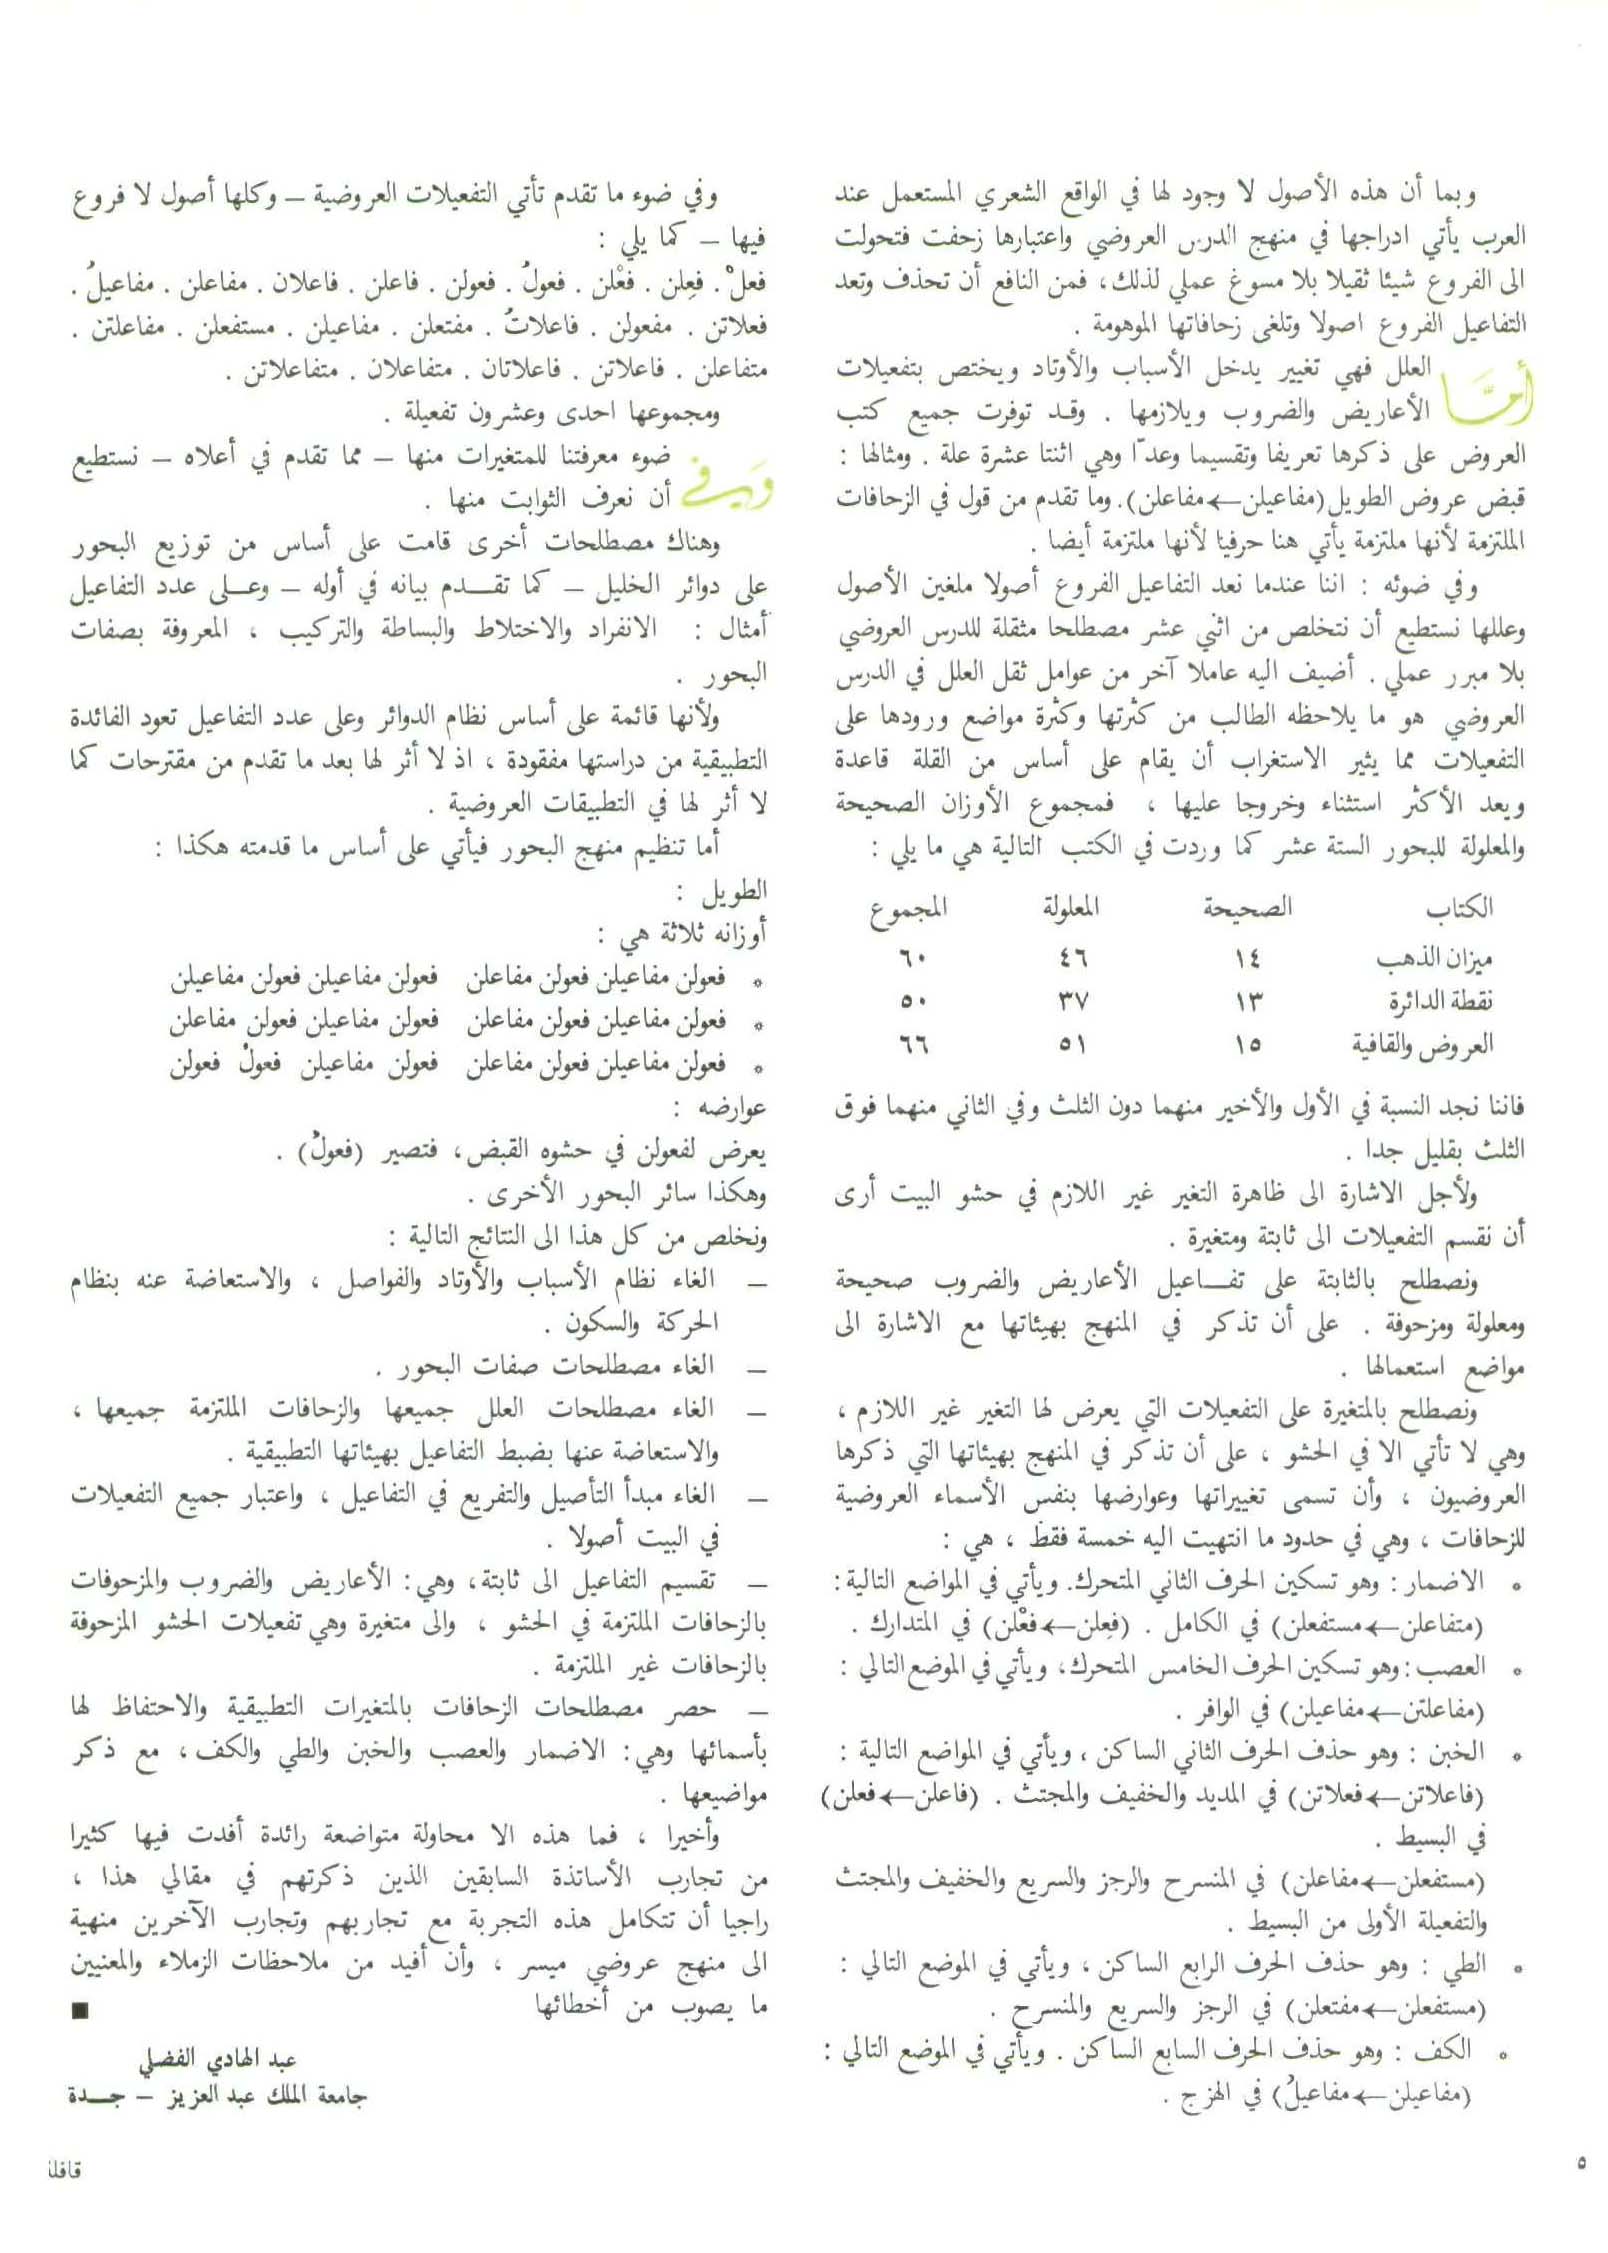 وبما أن هذه الأصول لا وجود لها في الواقع الشعري المستعمل عند
العرب يأتي ادراجها في منهج الدرس العروضي واعتبارها زحفت فتحولت
الى الفروع شيئا ثقيلا بلا مسوغ عملي لذلك، فمن النافع أن تحذف وتعد
التفاعيل الفروع اصولا وتلغى زحافاتها الموهومة .
أمَّا العلل فهي تغيير يدخل الأسباب والأوتاد ويختص بتفعيلات
الأعاريض والضروب ويلازمها . وقد توفرت جميع كتب
العروض على ذكرها تعريفا وتقسيما وعدّا وهي اثنتا عشرة علة . ومثالها :
قبض عروض الطويل (مفاعيلن ← مفاعلن). وما تقدم من قول في الزحافات
الملتزمة لأنها ملتزمة يأتي هنا حرفيا لأنها ملتزمة أيضا .
وفي ضوئه : اننا عندما نعد التفاعيل الفروع أصولا ملغين الأصول
وعللها نستطيع أن نتخلص من اثني عشر مصطلحا مثقلة للدرس العروضي
بلا مبرر عملي . أضيف اليه عاملا آخر من عوامل ثقل العلل في الدرس
العروضي هو ما يلاحظه الطالب من كثرتها وكثرة مواضع ورودها على
التفعيلات مما يثير الاستغراب أن يقام على أساس من القلة قاعدة
ويعد الأكثر استثناء وخروجا عليها ، فمجموع الأوزان الصحيحة
والمعلولة للبحور الستة عشر كما وردت في الكتب التالية هي ما يلي :
الكتاب الصحيحة المعلولة المجموع
ميزان الذهب ١٤ ٤٦ ٦٠
نقطة الدائرة ١٣ ٣٧ ٥٠
العروض والقافية ١٥ ٥١ ٦٦
فاننا نجد النسبة في الأول والأخير منهما دون الثلث وفي الثاني منهما فوق
الثلث بقليل جدا .
ولأجل الاشارة الى ظاهرة التغير غير اللازم في حشو البيت أرى
أن نقسم التفعيلات الى ثابتة ومتغيرة .
ونصطلح بالثابتة على تفـاعيل الأعاريض والضروب صحيحة
ومعلولة ومزحوفة . على أن تذكر في المنهج بهيئاتها مع الاشارة الى
مواضع استعمالها .
ونصطلح بالمتغيرة على التفعيلات التي يعرض لها التغير غير اللازم ،
وهي لا تأتي الا في الحشو ، على أن تذكر في المنهج بهيئاتها التي ذكرها
العروضيون ، وأن تسمى تغييراتها وعوارضها بنفس الأسماء العروضية
للزحافات ، وهي في حدود ما انتهيت اليه خمسة فقط ، هي :
• الاضمار : وهو تسكين الحرف الثاني المتحرك. ويأتي في المواضع التالية :
(متفاعلن ← مستفعلن) في الكامل . (فعِلن ← فعْلن) في المتدارك .
• العصب : وهو تسكين الحرف الخامس المتحرك، ويأتي في الموضع التالي :
(مفاعلتن ← مفاعيلن) في الوافر .
• الخبن : وهو حذف الحرف الثاني الساكن ، ويأتي في المواضع التالية :
(فاعلاتن ← فعلاتن) في المديد والخفيف والمجتث . (فاعلن ← فعلن)
في البسيط .
(مستفعلن ← مفاعلن) في المنسرح والرجز والسريع والخفيف والمجتث
والتفعيلة الأولى من البسيط .
• الطي : وهو حذف الحرف الرابع الساكن ، ويأتي في الموضع التالي :
(مستفعلن ← مفتعلن) في الرجز والسريع والمنسرح .
• الكف : وهو حذف الحرف السابع الساكن . ويأتي في الموضع التالي :
(مفاعيلن ← مفاعيلُ) في الهزج .
وفي ضوء ما تقدم تأتي التفعيلات العروضية – وكلها أصول لا فروع
فيها – كما يلي :
فعلْ . فعِلن . فعْلن . فعولُ . فعولن . فاعلن . فاعلان . مفاعلن . مفاعيلُ .
فعلاتن . مفعولن . فاعلاتُ . مفتعلن . مفاعيلن . مستفعلن . مفاعلتن .
متفاعلن . فاعلاتن . فاعلاتان . متفاعلان . متفاعلاتن .
ومجموعها احدى وعشرون تفعيلة .
وَفي ضوء معرفتنا للمتغيرات منها – مما تقدم في أعلاه – نستطيع
أن نعرف الثوابت منها .
وهناك مصطلحات أخرى قامت على أساس من توزيع البحور
على دوائر الخليل – كما تقـدم بيانه في أوله – وعـلى عدد التفاعيل
أمثال : الانفراد والاختلاط والبساطة والتركيب ، المعروفة بصفات
البحور .
ولأنها قائمة على أساس نظام الدوائر وعلى عدد التفاعيل تعود الفائدة
التطبيقية من دراستها مفقودة ، اذ لا أثر لها بعد ما تقدم من مقترحات كما
لا أثر لها في التطبيقات العروضية .
أما تنظيم منهج البحور فيأتي على أساس ما قدمته هكذا :
الطويل :
أوزانه ثلاثة هي :
• فعولن مفاعيلن فعولن مفاعلن فعولن مفاعيلن فعولن مفاعيلن
• فعولن مفاعيلن فعولن مفاعلن فعولن مفاعيلن فعولن مفاعلن
• فعولن مفاعيلن فعولن مفاعلن فعولن مفاعيلن فعولُ فعولن
عوارضه :
يعرض لفعولن في حشوه القبض، فتصير (فعولُ) .
وهكذا سائر البحور الأخرى .
ونخلص من كل هذا الى النتائج التالية :
– الغاء نظام الأسباب والأوتاد والفواصل ، والاستعاضة عنه بنظام
الحركة والسكون .
– الغاء مصطلحات صفات البحور .
– الغاء مصطلحات العلل جميعها والزحافات الملتزمة جميعها ،
والاستعاضة عنها بضبط التفاعيل بهيئاتها التطبيقية .
– الغاء مبدأ التأصيل والتفريع في التفاعيل ، واعتبار جميع التفعيلات
في البيت أصولا .
– تقسيم التفاعيل الى ثابتة، وهي: الأعاريض والضروب والمزحوفات
بالزحافات الملتزمة في الحشو ، والى متغيرة وهي تفعيلات الحشو المزحوفة
بالزحافات غير الملتزمة .
– حصر مصطلحات الزحافات بالمتغيرات التطبيقية والاحتفاظ لها
بأسمائها وهي: الاضمار والعصب والخبن والطي والكف، مع ذكر
مواضيعها .
وأخيرا ، فما هذه الا محاولة متواضعة رائدة أفدت فيها كثيرا
من تجارب الأساتذة السابقين الذين ذكرتهم في مقالي هذا ،
راجيا أن تتكامل هذه التجربة مع تجاربهم وتجارب الآخرين منهية
الى منهج عروضي ميسر ، وأن أفيد من ملاحظات الزملاء والمعنيين
ما يصوب من أخطائها ■
عبد الهادي الفضلي
جامعة الملك عبد العزيز – جـدة
٥
قافلة